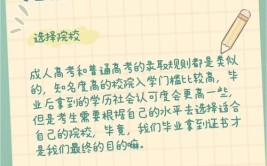 选择院校
成人高考和普通高考的录取规则都是类似
的，知名度高的院校入学门槛比较高，毕
业后拿到的学历社会认可度会更高一些，
但是考生需要根据自己的水平去选择适合
自己的院校，毕竟，我们毕业拿到证书才
是我们最终的目的嘛。